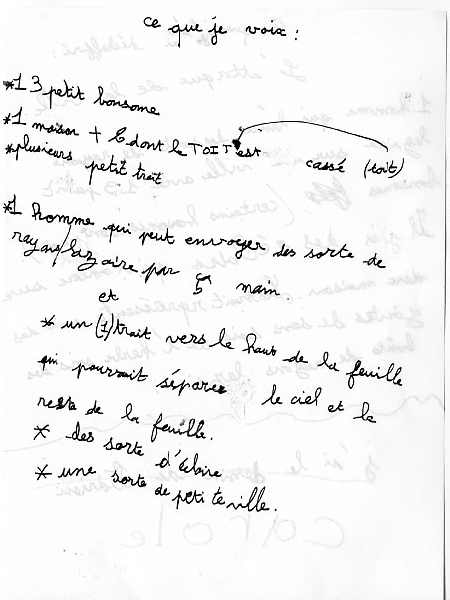 ce que je voix :
*1 3 petit bonsome
*1 maison + 6 dont le TOIT est cassé (toit)
*plusieurs petit trait
*1 homme qui peut envoyer des sorte de
rayons/lazaire par sa main.
et
* un (1) trait vers le haut de la feuille
qui pourrait séparer le ciel et le
reste de la feuille.
* des sorte d'éclaire
* une sorte de petite ville.
carole